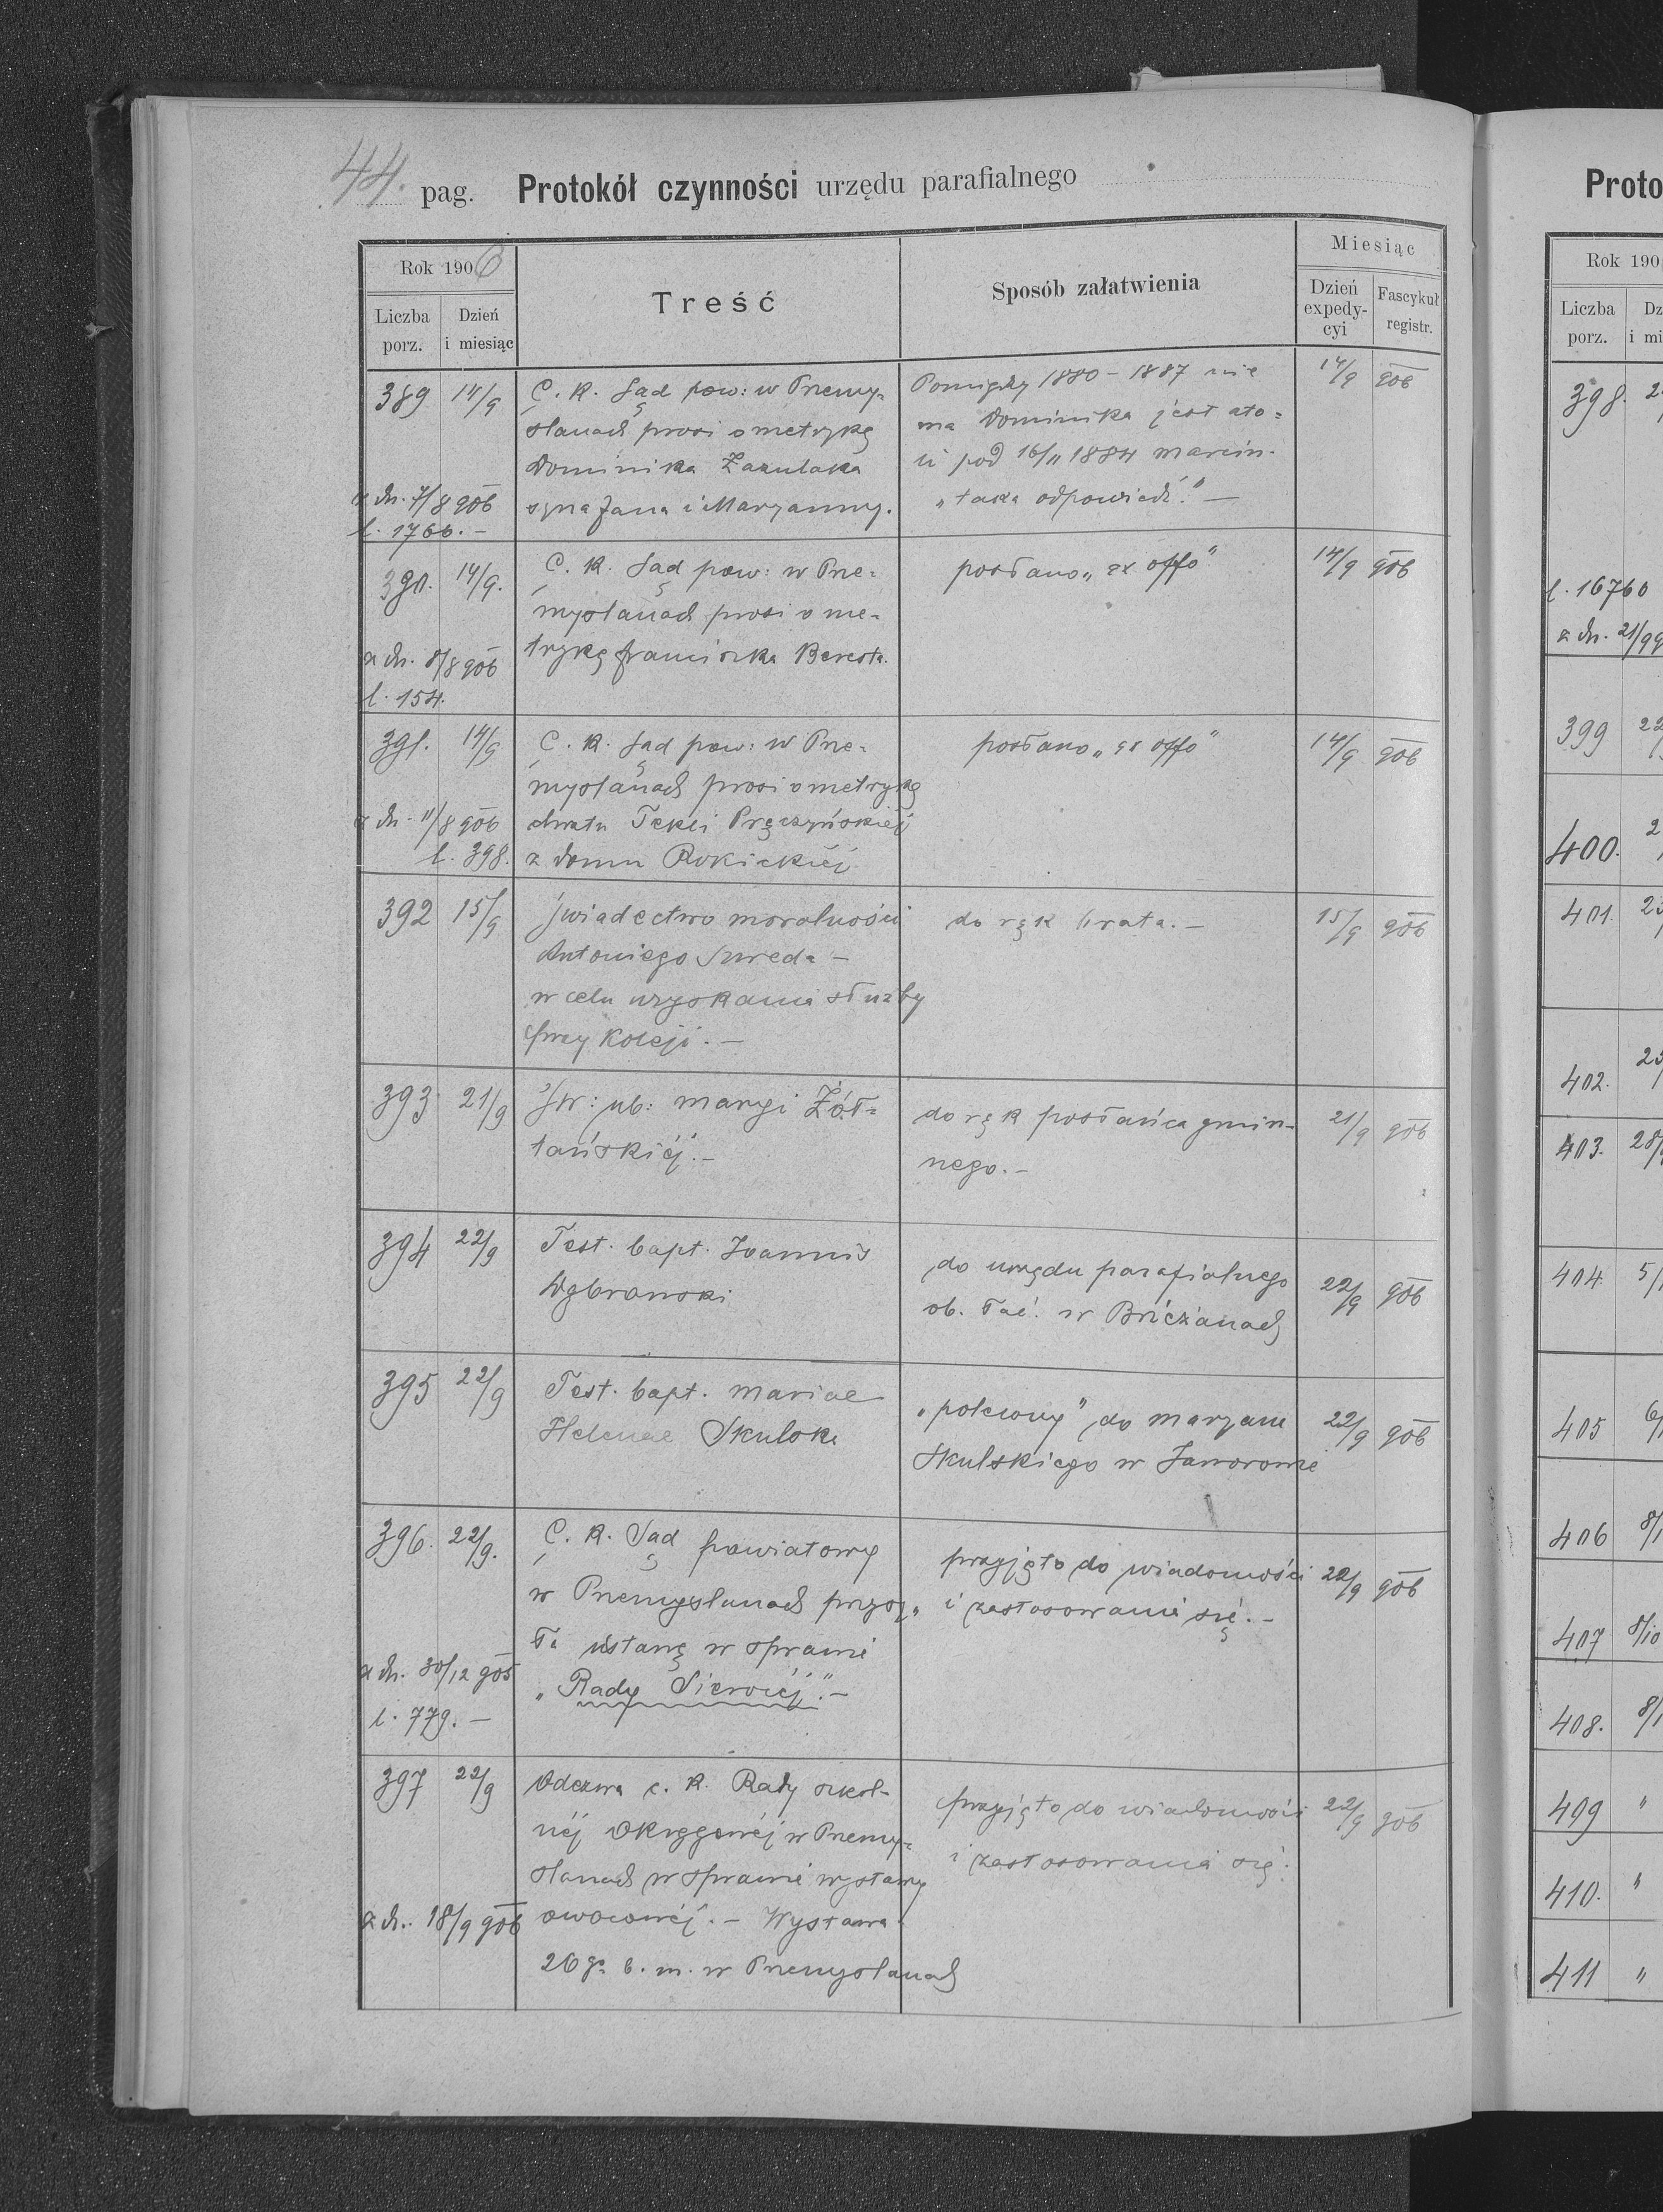 44. pag. Protokół czynności urzędu parafialnego
Rok 1906
Liczba porz.
Dzień i miesiąc
Treść
Sposób załatwienia
Miesiąc
Dzień expedycyi
Fascykuł registr.
389 14/9 C. K. Sąd pow: w Przemy=
słanach prosi o metrykę
Dominika Zazulaka
syna Jana i Maryanny.
z dn. 7/8 906
l. 1766. –
Pomiędzy 1880 – 1887 nie
ma Dominika jest ato=
li pod 16/11 1884 Marcin.
„taka odpowiedź." –
14/9 906
390. 14/9. C. K. Sąd pow: w Prze=
mysłanach prosi o me=
trykę Franciszka Beresta.
z dn. 8/8 906
l. 154.
posłano „ex offo"
14/9 906
391. 14/9 C. K. Sąd pow: w Prze=
mysłanach prosi o metrykę
chrztu Tekli Pręczyńskiéj
z domu Rokickiéj
z dn. 11/8 906
l. 398.
posłano „ex offo"
14/9 906
392 15/9 Świadectwo moralności
Antoniego Szweda –
w celu uzyskania służby
przy Koleji. –
do rąk brata. –
15/9 906
393 21/9 Św: ub: Maryi Żół=
tańskiéj. –
do rąk posłańca gmin-
nego. –
21/9 906
394 22/9 Test. bapt. Joannis
Dąbrowski
do urzędu parafialnego
ob. łać. w Brzeżanach
22/9 906
395 22/9 Test. bapt. Mariae
Helenae Skulska
„polecony" do Maryana
Skulskiego w Jaworowie
22/9 906
396. 22/9. C. K. Sąd powiatowy
w Przemyslanach przysy„
ła ustawę w sprawie
„Rady Sierociéj". –
z dn. 30/12 905
l. 779. –
przyjęto do wiadomości
i zastosowania się. –
22/9 906
397 22/9 Odezwa c. k. Rady szkol-
néj Okręgowéj w Przemy=
słanach w sprawie wystawy
owocowéj. – Wystawa
26go b. m. w Przemysłanach
z dn. 18/9 906
przyjęto do wiadomości
i zastosowania się.
22/9 906
Proto
Rok 190
Liczba porz.
Dz
i mi
398.
l. 16760
z dn. 21/9 9
399 22
400. 2
401. 2
402. 25
403. 28/
404 5/
405 6/
406 8/1
407 8/10
408. 8/1
409 "
410. "
411 "